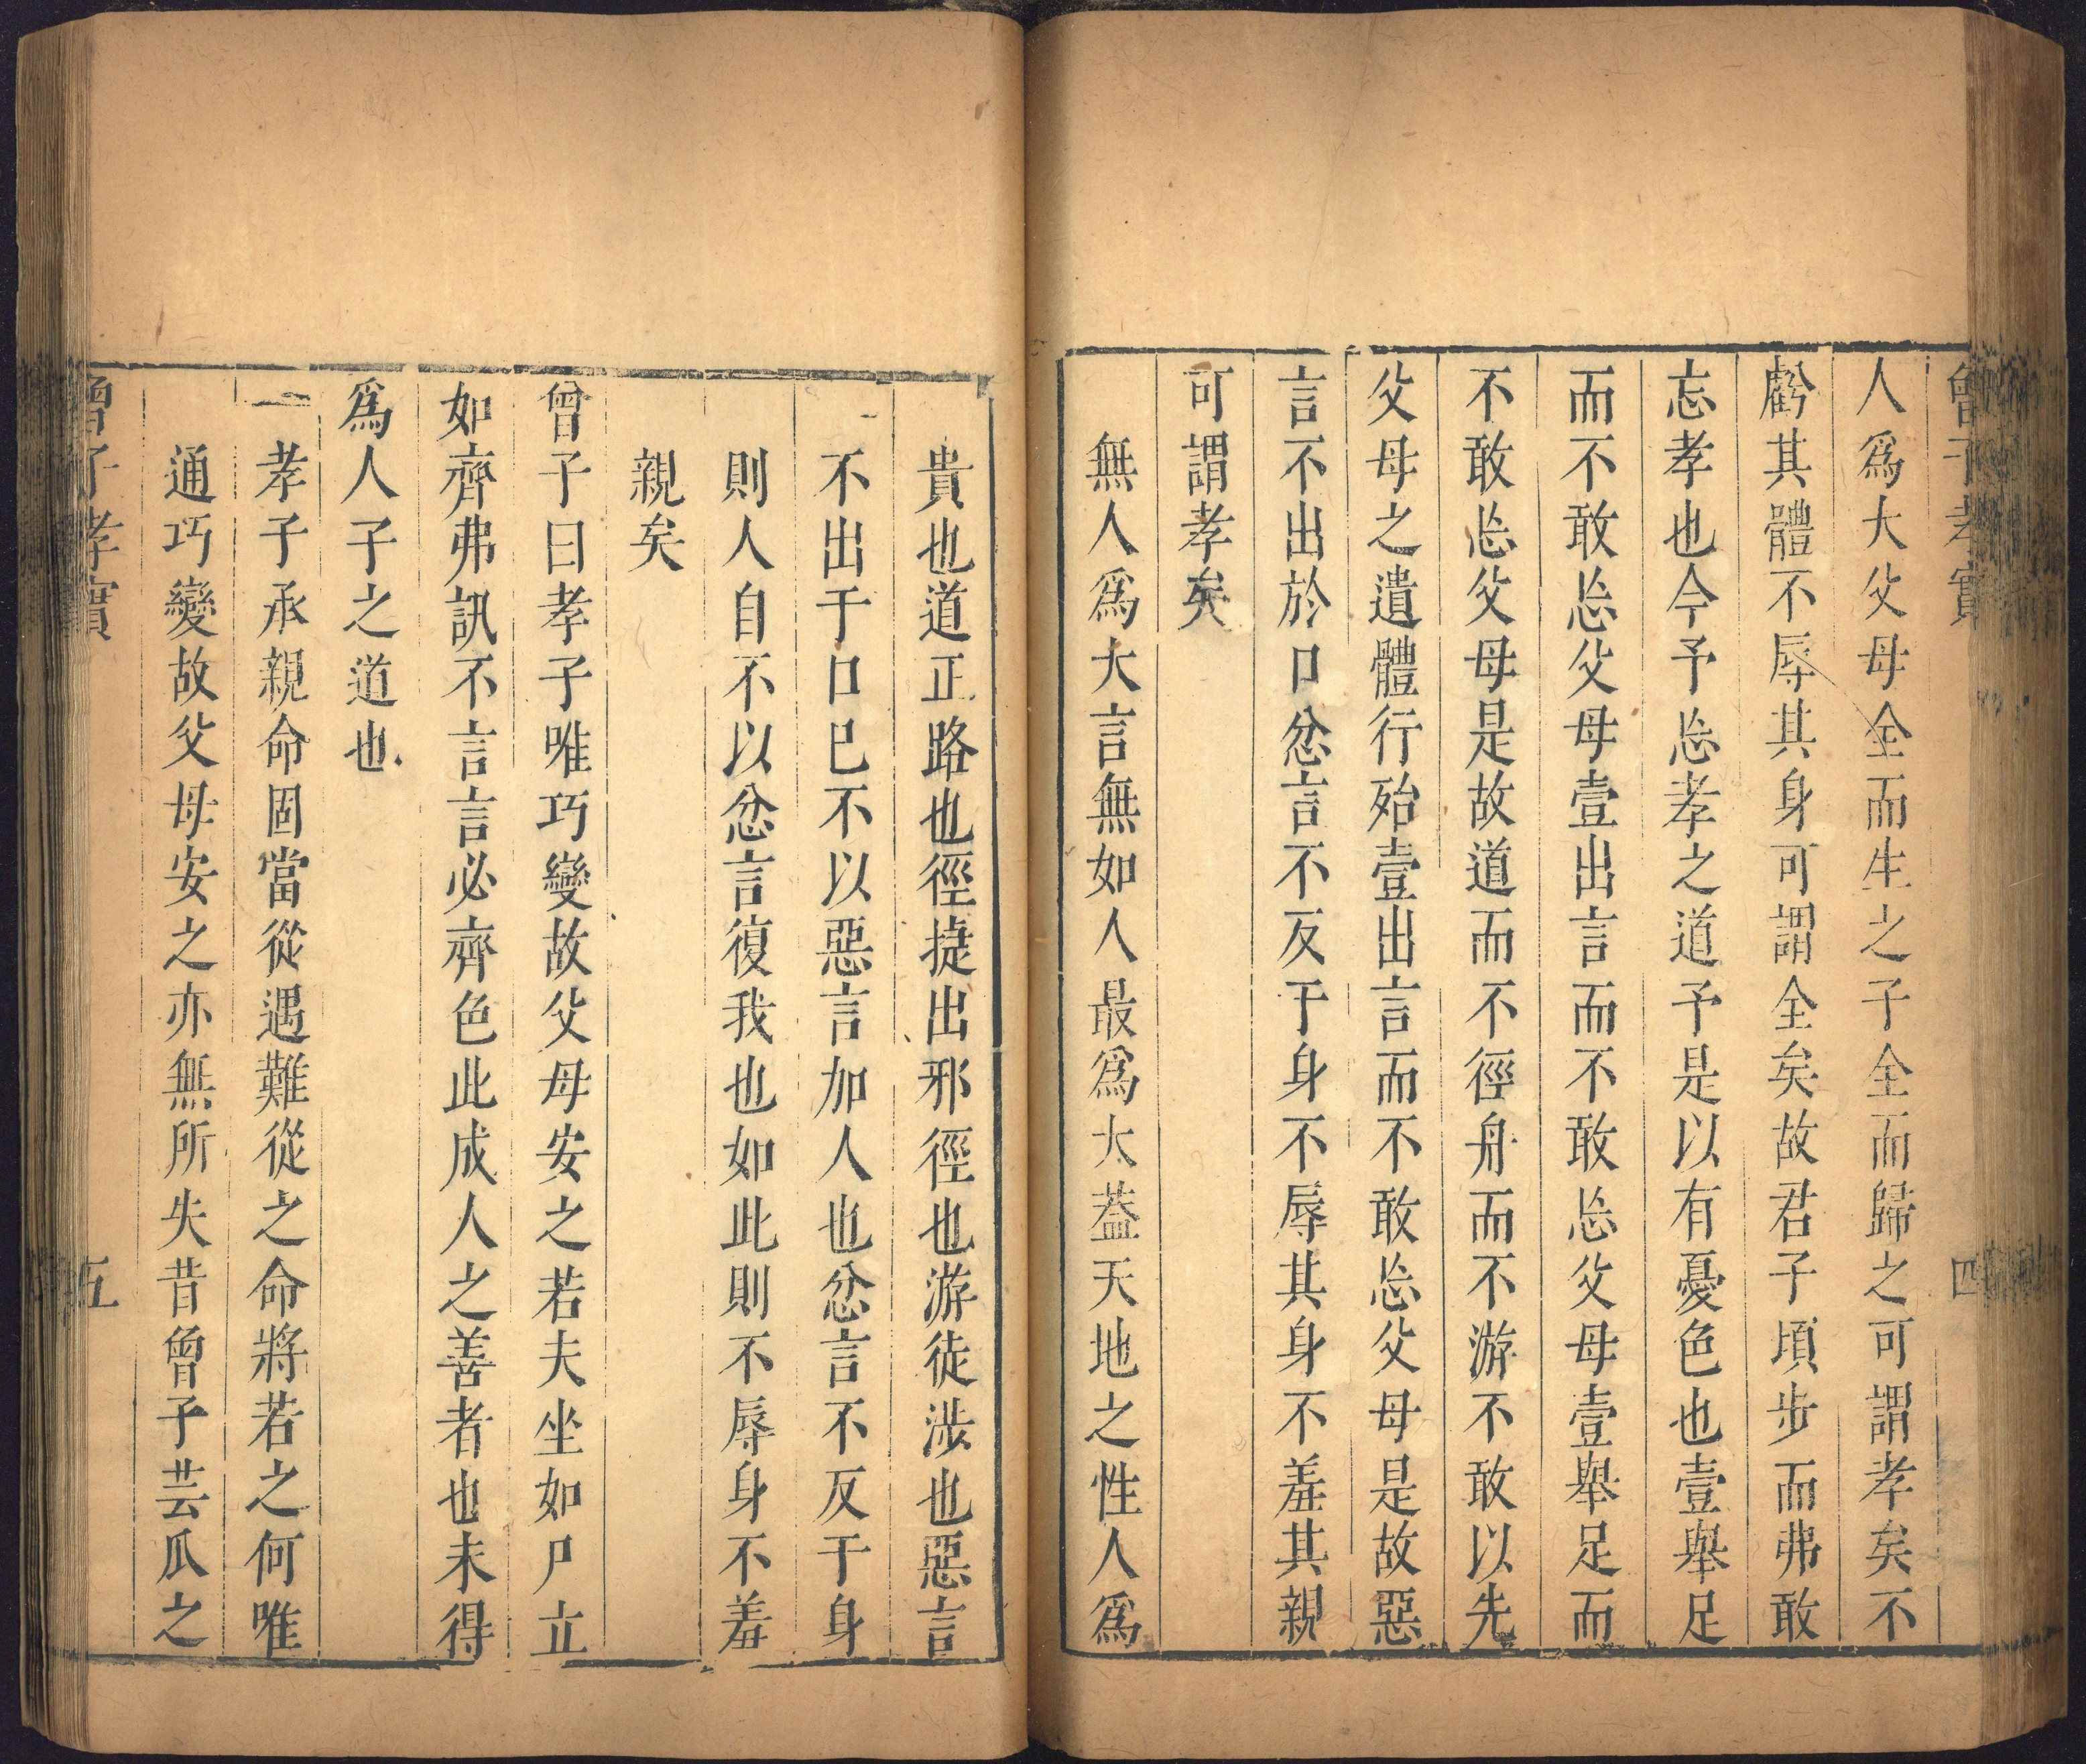 曾子孝實 四
人爲大父母全而生之子全而歸之可謂孝矣不
虧其體不辱其身可謂全矣故君子頃步而弗敢
忘孝也今予忘孝之道予是以有憂色也壹舉足
而不敢忘父母壹出言而不敢忘父母壹舉足而
不敢忘父母是故道而不徑舟而不游不敢以先
父母之遺體行殆壹出言而不敢忘父母是故惡
言不出於口忿言不反于身不辱其身不羞其親
可謂孝矣
無人爲大言無如人最爲大葢天地之性人爲
貴也道正路也徑捷出邪徑也游徒涉也惡言
不出于口已不以惡言加人也忿言不反于身
則人自不以忿言復我也如此則不辱身不羞
親矣
曾子曰孝子唯巧變故父母安之若夫坐如尸立
如齊弗訊不言言必齊色此成人之善者也未得
爲人子之道也
一孝子承親命固當從遇難從之命將若之何唯
通巧變故父母安之亦無所失昔曾子芸瓜之
曾子孝實 五